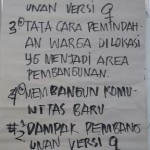 UNAN VERSI 9
3 TATA CARA PEMINDAH-
AN WARGA DILOKASI
YG MENJADI AREA
PEMBANGUNAN.
4 MEMBANGUN KOMU-
NITAS BARU
#3 DAMPAK PEMBANG
UNAN VERSI 9